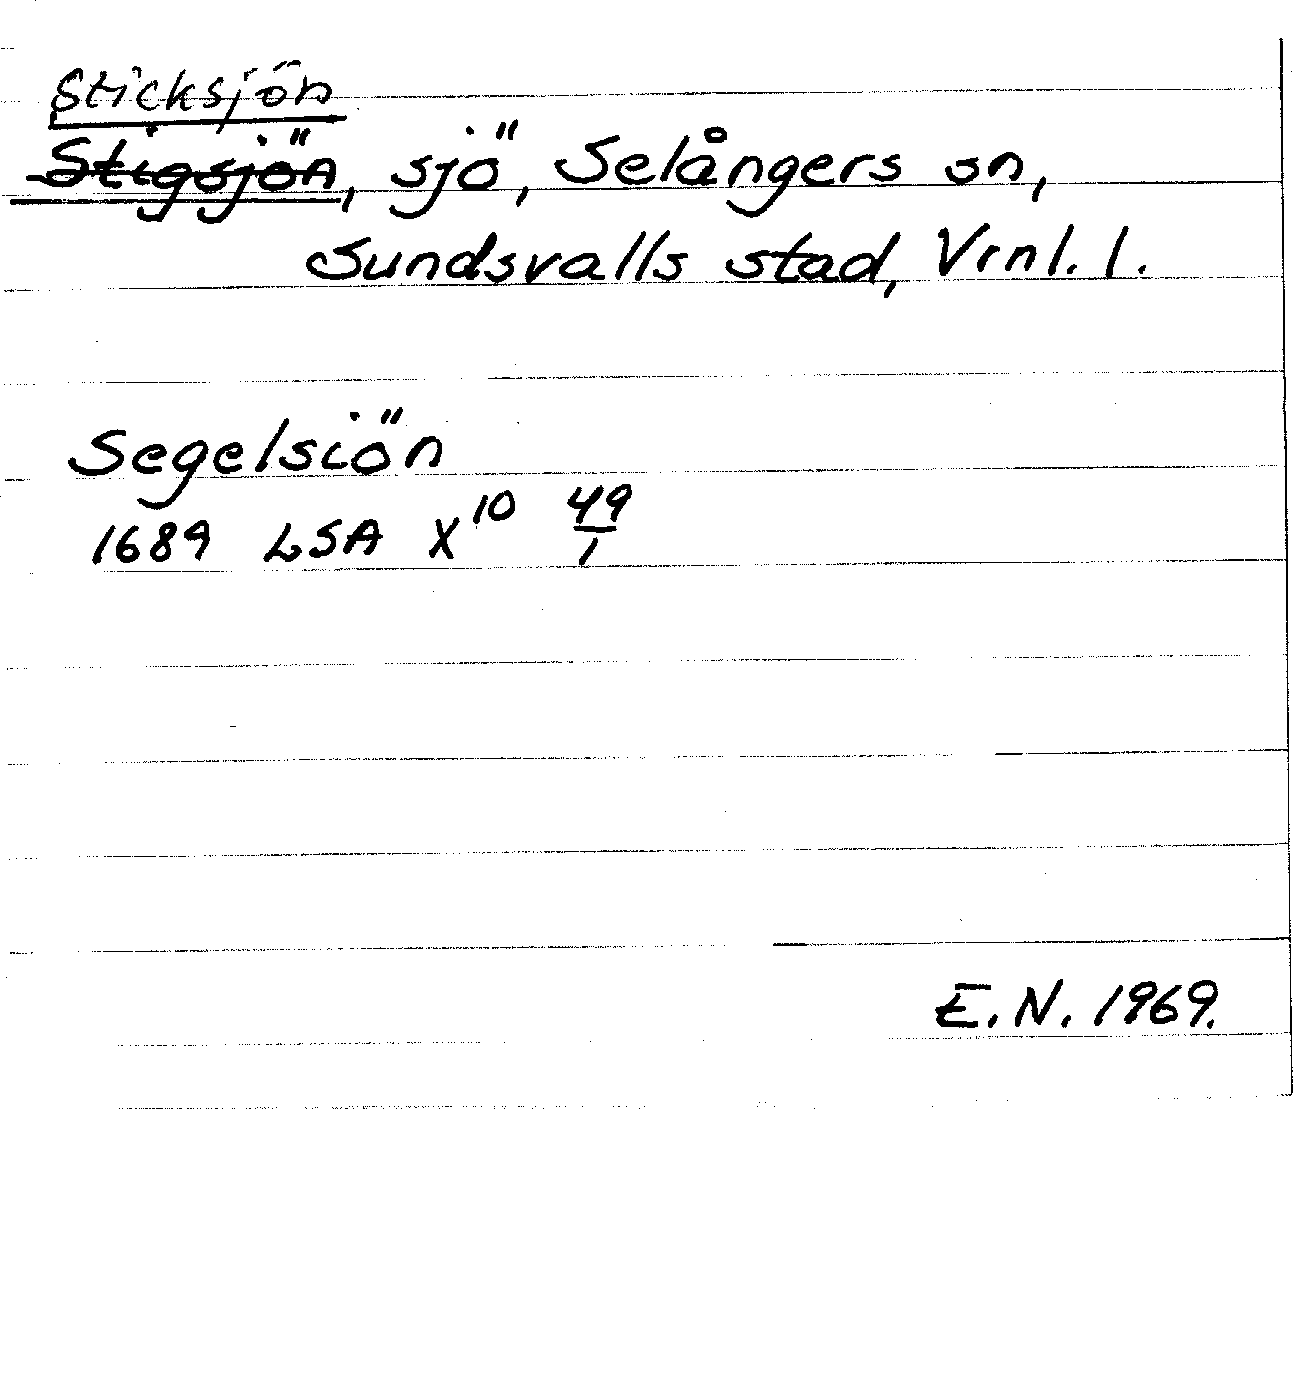 Sticksjön
Stigsjön, sjö, Selångers sn,
Sundsvalls stad, Vrnl. l.
Segelsiön
1689 LSA X¹⁰ 49/1
E.N. 1969.